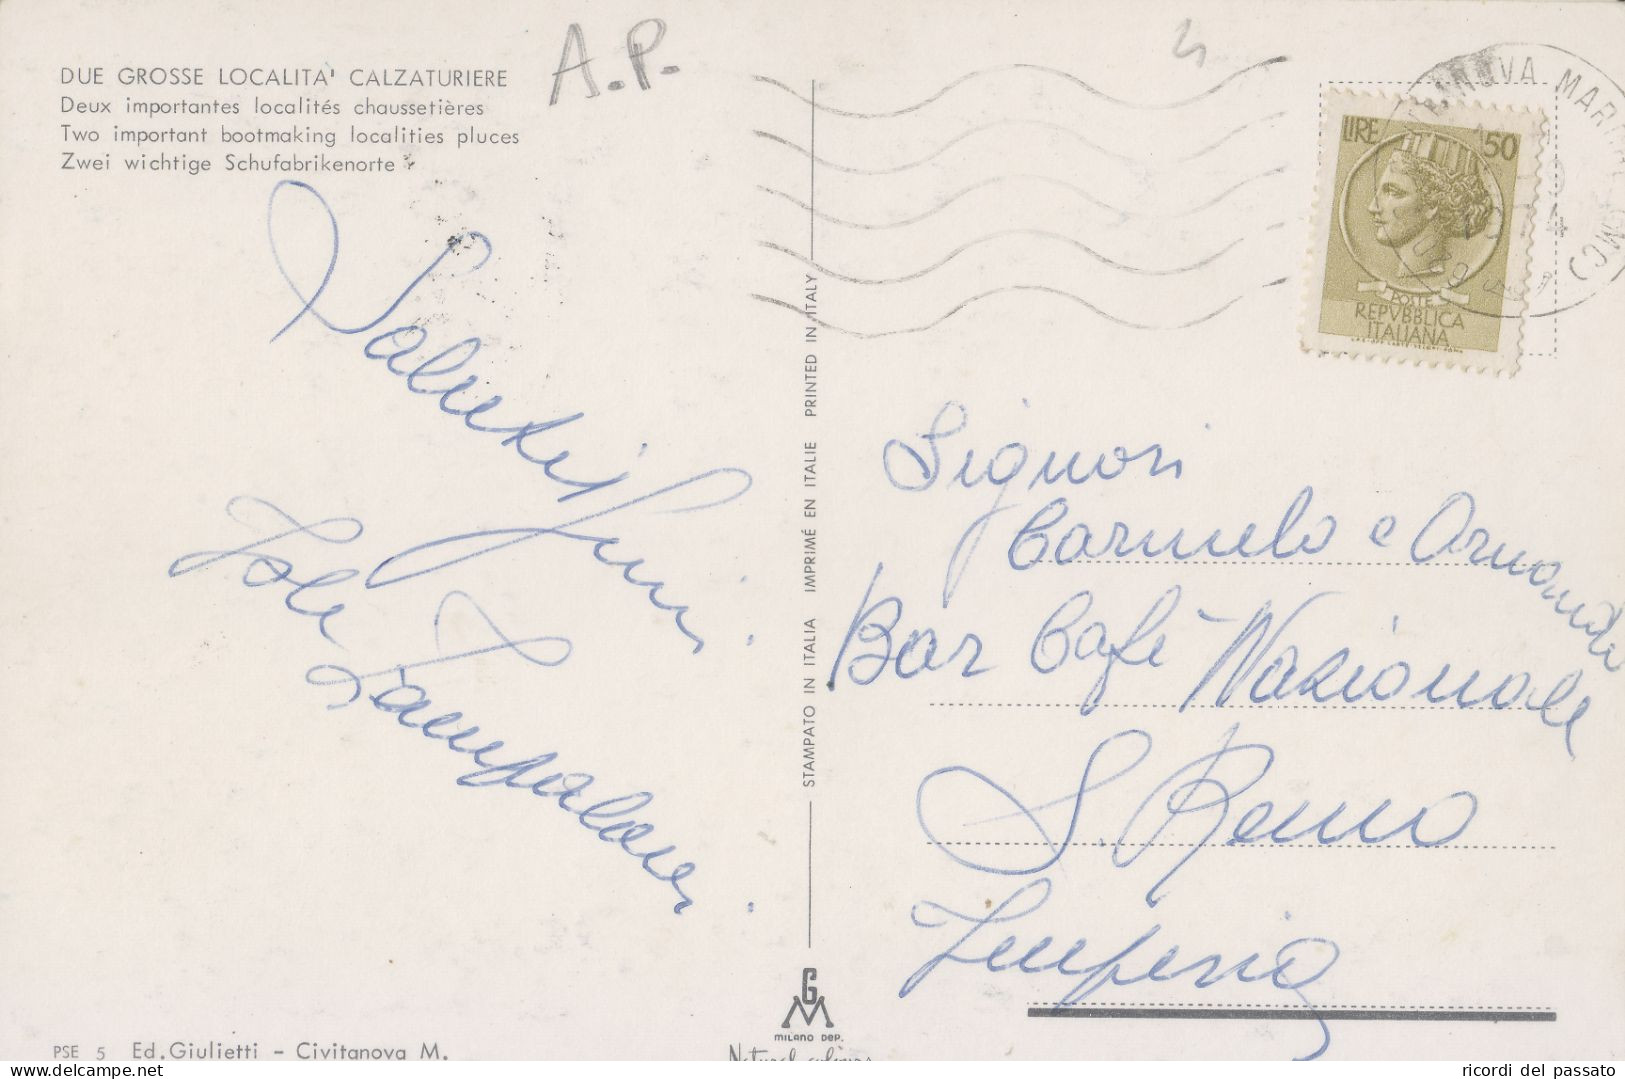 DUE GROSSE LOCALITA' CALZATURIERE
Deux importantes localités chaussetières
Two important bootmaking localities pluces
Zwei wichtige Schufabrikenorte
A.P.
Salutissimi
Jole
STAMPATO IN ITALIA IMPRIMÉ EN ITALIE PRINTED IN ITALY
LIRE 50
POSTE
REPVBBLICA
ITALIANA
Signori
Carmelo e Armando
Bar Cafè Nazionale
S. Remo
Imperia
GM
MILANO DEP.
PSE 5 Ed. Giulietti - Civitanova M.
ricordi del passato